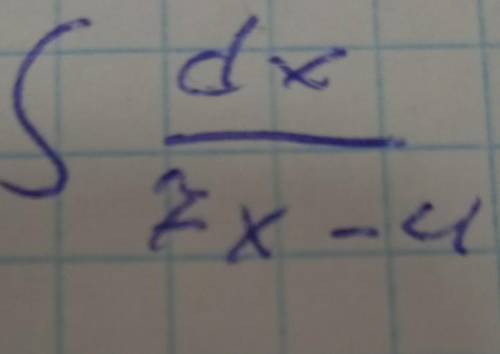 ∫ dx
7x - 4